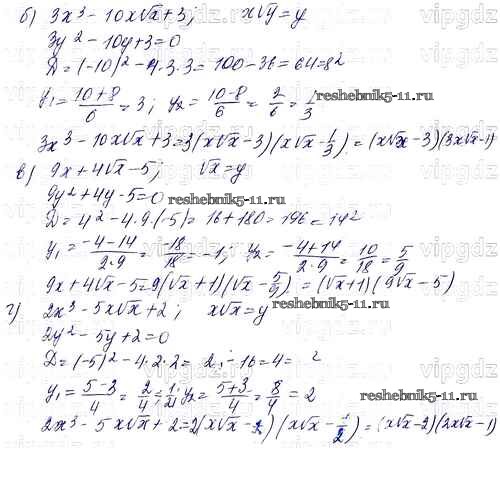 б) 3x³ - 10x√x + 3; x√y = y
3y² - 10y + 3 = 0
D = (-10)² - 4·3·3 = 100 - 36 = 64 = 8²
y₁ = (10+8)/6 = 3; y₂ = (10-8)/6 = 2/6 = 1/3
reshebnik5-11.ru
3x³ - 10x√x + 3 = 3(x√x - 3)(x√x - 1/3) = (x√x - 3)(3x√x - 1)
в) 9x + 4√x - 5; √x = y
9y² + 4y - 5 = 0 reshebnik5-11.ru
D = 4² - 4·9·(-5) = 16 + 180 = 196 = 14²
y₁ = (-4-14)/(2·9) = -18/18 = -1; y₂ = (-4+14)/(2·9) = 10/18 = 5/9
9x + 4√x - 5 = 9(√x + 1)(√x - 5/9) = (√x + 1)(9√x - 5)
г) 2x³ - 5x√x + 2; x√x = y reshebnik5-11.ru
2y² - 5y + 2 = 0
D = (-5)² - 4·2·2 = 2 - 16 = 4 = 2
y₁ = (5-3)/4 = 2/4 = 1/2; y₂ = (5+3)/4 = 8/4 = 2
reshebnik5-11.ru
2x³ - 5x√x + 2 = 2(x√x - 2)(x√x - 1/2) = (x√x - 2)(2x√x - 1)
vipgdz